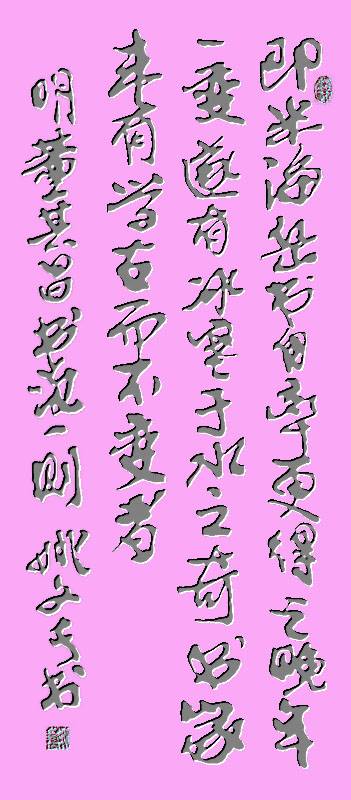 即米海岳书自率更得之晚年
一变遂有冰寒于水之奇书家
未有学古而不变者
明董其昌书论一则 姚书